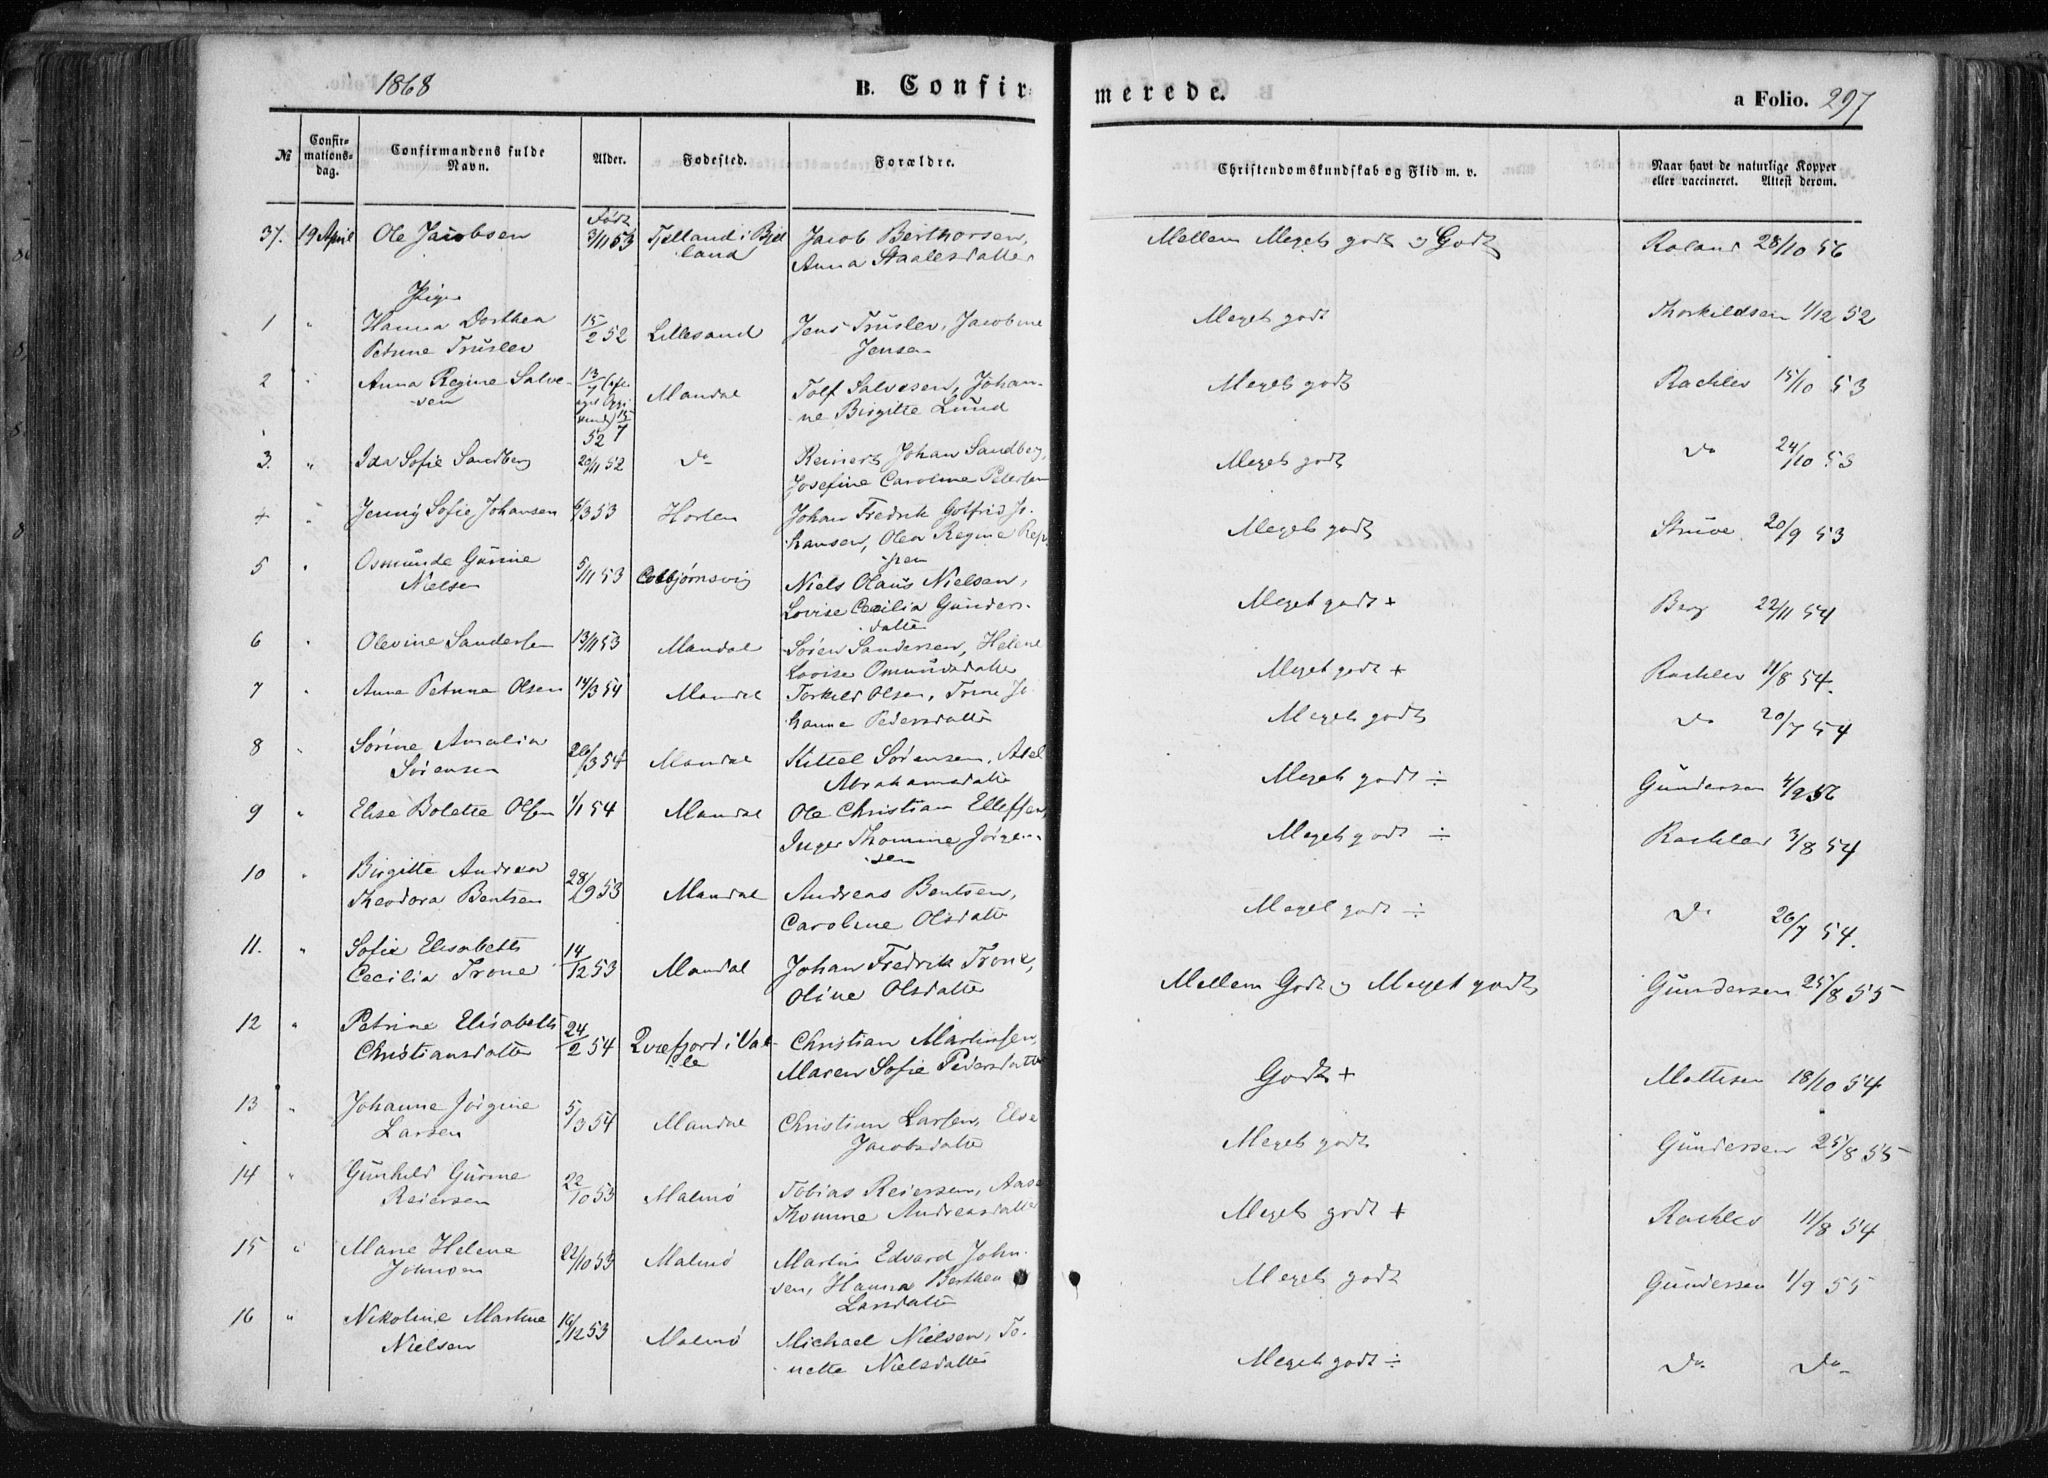 1868 B. Confir- merede. a Folio. 297
№ Confir-mations-dag. Confirmandens fulde Navn. Alder. Fødested. Forældre. Christendomskundskab og Flid m. v. Naar havt de naturlige Kopper eller vaccineret. Attest derom.
Født
37. 19 April Ole Jacobsen 3/11 53 Tjelland i Bjel Jacob Berthorsen, Mellem Meget godt og Godt Roland 28/10 56
land Anna Staalesdatter
Piger
1 " Hanna Dorthea 15/2 52 Lillesand Jens Truslev, Jacobine Meget godt Thorkildsen 1/12 52
Petrine Truslev Jensen
2 " Anna Regine Salve- 13/7 Mandal Tolf Salvesen, Johan- Meget godt Rachlev 15/10 53
sen 15/7 52 ne Birgitte Lund
3. " Ida Sofie Sandberg 20/11 52 Do Reinert Johan Sandberg, Meget godt Do 24/10 53
Josefine Caroline Petersen
4 " Jenny Sofie Johansen 6/3 53 Horten Johan Fredrik Gotfrid Jo- Meget godt Struve 20/9 53
hansen, Olea Regine Rep-
pen
5 " Osmunde Gurine 5/11 53 Colbjørnsvig Niels Olaus Nielsen, Meget godt + Berg 22/11 54
Nielsen Lovise Cecilia Gunders-
datter
6 " Olevine Sandersen 13/11 53 Mandal Søren Sandersen, Helene Meget godt + Rachlev 11/8 54.
Lovise Omundsdatter
7 " Anne Petrine Olsen 14/3 54 Mandal Torkild Olsen, Trine Jo Meget godt Do 20/7 54
hanne Pedersdatter
8 " Sørine Amalia 26/3 54 Mandal Kittel Sørensen, Abel Meget godt ÷ Gundersen 4/9 56
Sørensen Abrahamsdatter
9 " Elise Bolette Olsen 1/1 54 Mandal Ole Christian Ellefsen, Meget godt ÷ Rachlev 3/8 54
Inger Thomine Jørgen-
sen
10 " Birgitte Andrea 28/9 53 Mandal Andreas Bentsen, Meget godt ÷ Do 26/7 54.
Theodora Bentsen Caroline Olsdatter
11. " Sofie Elisabeth 14/12 53 Mandal Johan Fredrik Trone, Mellem Godt og Meget godt Gundersen 25/8 55
Cecilia Trone Oline Olsdatter
12 " Petrine Elisabeth 24/2 54 Qvefjord i Val- Christian Martinsen, Godt + Mattisen 18/10 54
Christiansdatter le Maren Sofie Pedersdatter
13 " Johanne Jørgine 5/3 54 Mandal Christian Larsen, Else Meget godt Gundersen 25/8 55
Larsen Jacobsdatter
14 " Gunhild Gurine 22/10 53 Malmø Tobias Reiersen, Aase Meget godt + Rachlev 11/8 54
Reiersen Thomine Andreasdatter
15 " Marie Helene 22/10 53 Malmø Martin Edvard John- Meget godt Gundersen 1/9 55
Johnsen sen, Hanna Berthea
Larsdatter
16 " Nikoline Martine 16/12 53 Malmø Michael Nielsen, To- Meget godt ÷ Do Do
Nielsen nette Nielsdatter